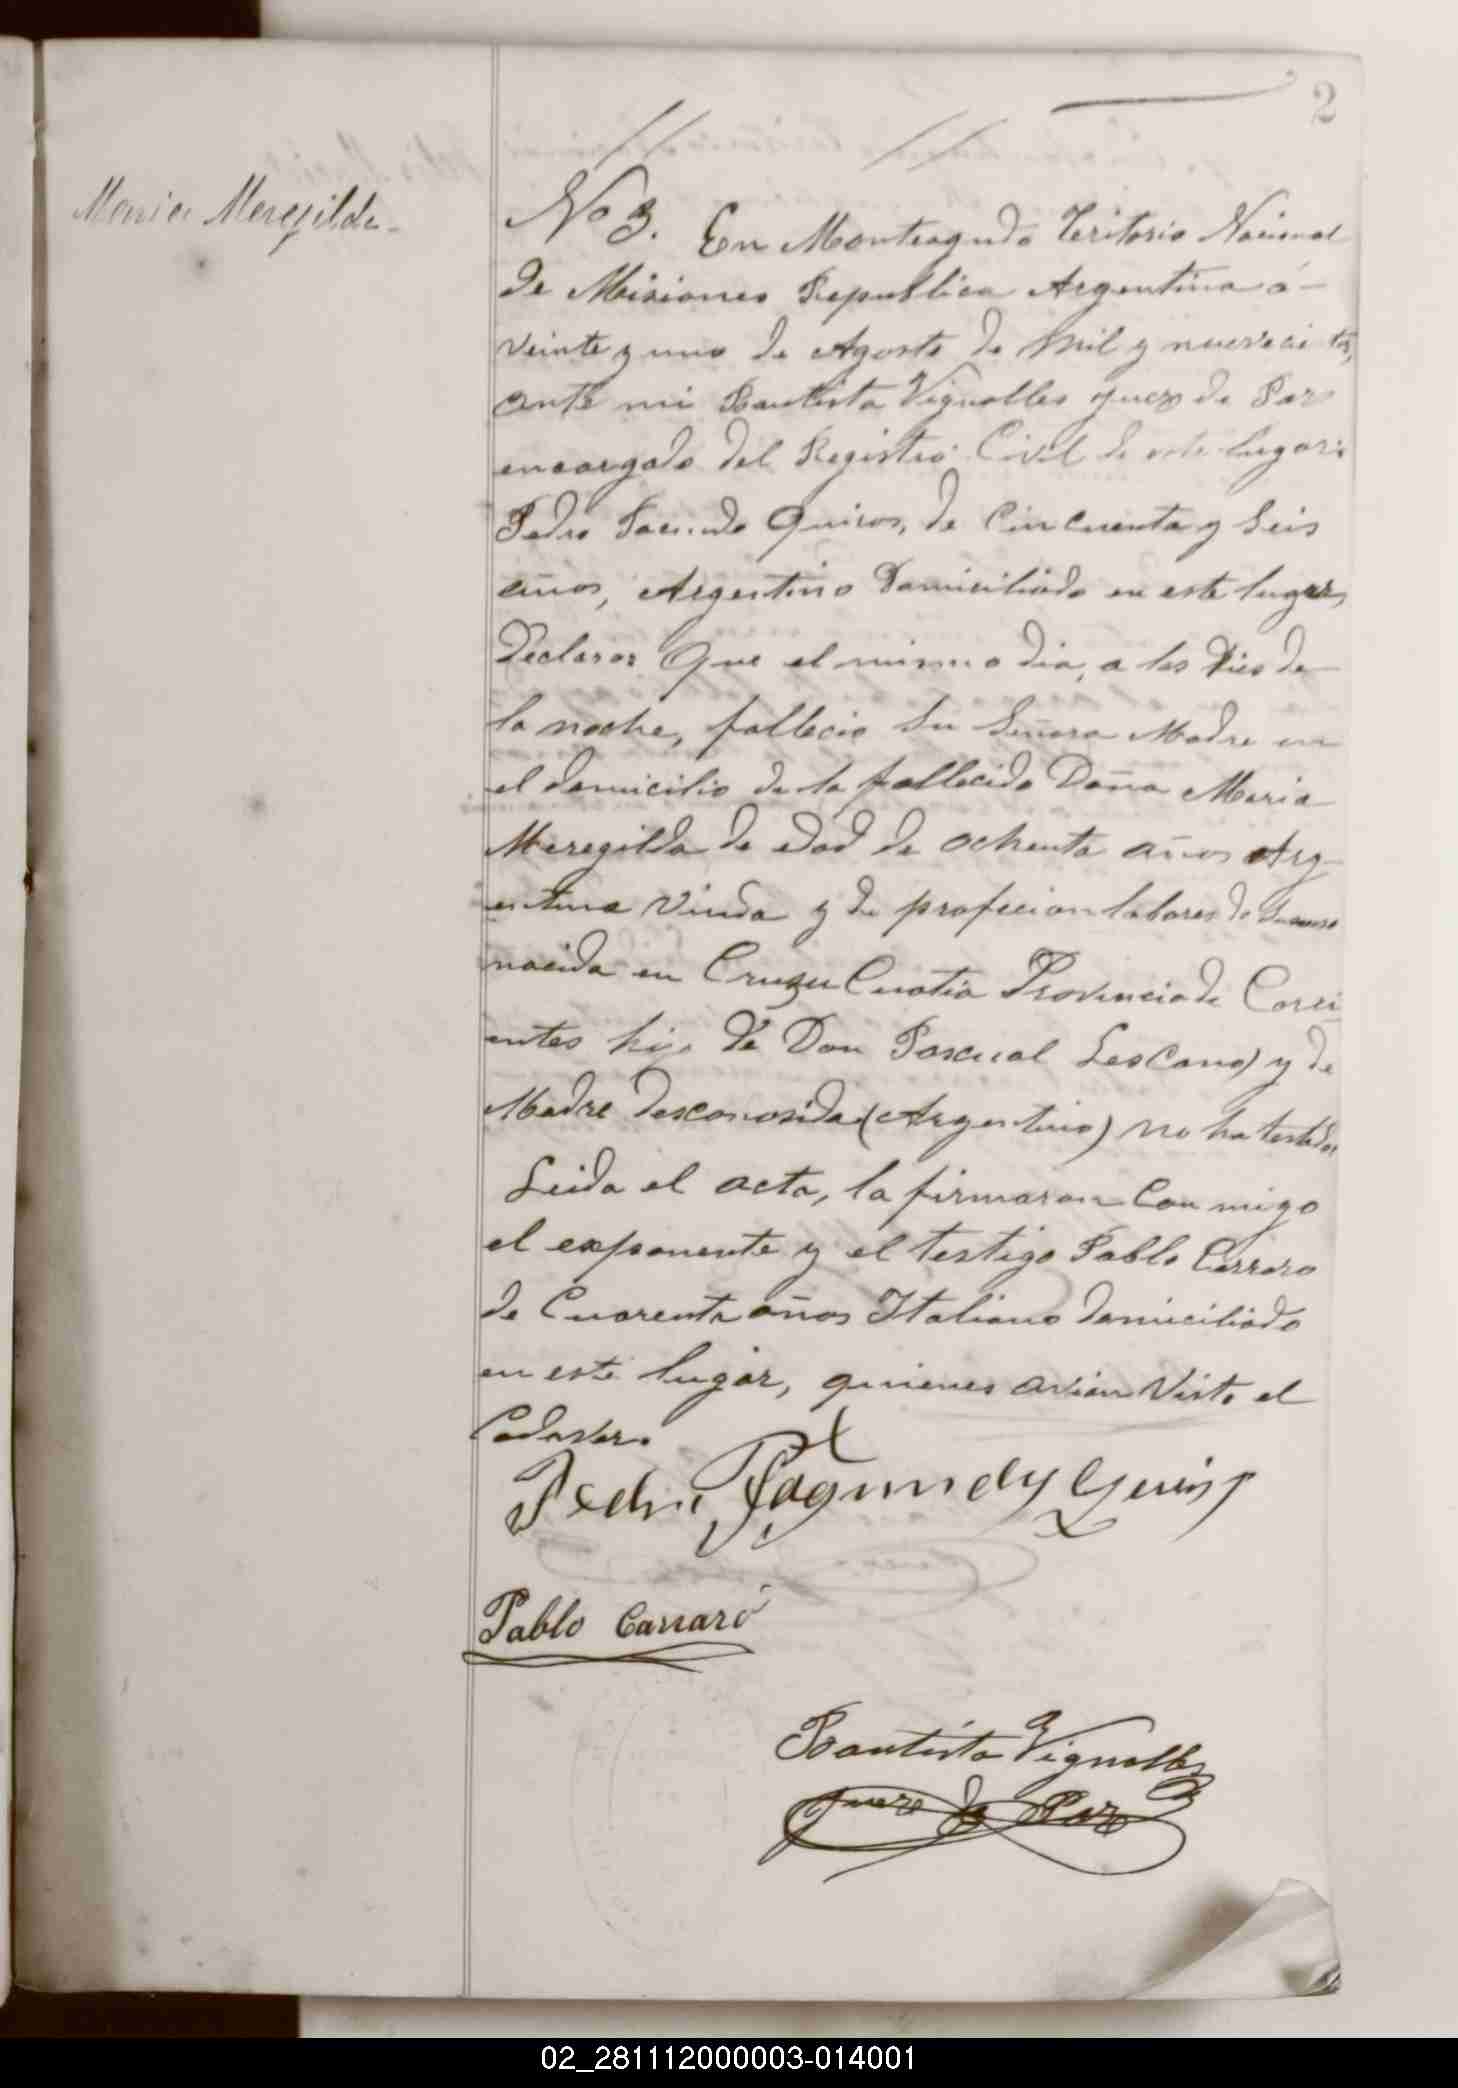 2
Maria Meregilda
No 3. En Monteagudo Teritorio Nacional
de Misiones Republica Argentina á
veinte y uno de Agosto de Mil y nuevecientos,
ante mi Bautista Vignolles Juez de Paz
encargado del Registro Civil de este lugar:
Pedro Facundo Quiros, de Cincuenta y Seis
años, Argentino Domiciliado en este lugar,
Declaro: Que el mismo dia, a las Dies de
la noche, fallecio Su Señora Madre en
el domicilio de la fallecida Doña Maria
Meregilda de edad de ochenta años Arg-
entina Viuda y de profecion labores de
nacida en Cruzu Cuatia Provincia de Corri
entes hija de Don Pascual Lescano y de
Madre desconosida (Argentino) no ha testado,
Leida el acta, la firmaron Con migo
el exponente y el testigo Pablo Carraro
de Cuarenta años Italiano domiciliado
en este lugar, quienes avian Visto el
Cadaver.
Pedro Fagundy Quiros
Pablo Carraró
Bautista Vignolles
Juez de Paz
02_281112000003-014001